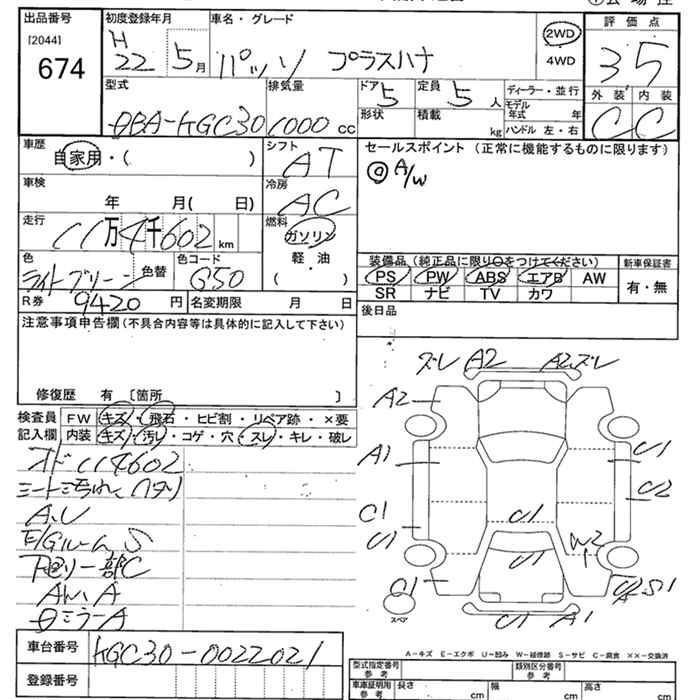 出品番号 初度登録年月 車名・グレード 評価点
[2044] H
674 22 5月 パッソ プラスハナ 2WD 4WD 3 5
型式 排気量 ドア 5 定員 5人 ディーラー・並行 外装 内装
DBA-KGC30 1000cc 形状 積載 kg モデル年式 年 C C
ハンドル 左・右
車歴 シフト セールスポイント (正常に機能するものに限ります)
自家用・( ) AT ◎ A/W
車検 冷房
年 月( 日) AC
走行 燃料
11万4千602km ガソリン 装備品(純正品に限り○をつけてください) 新車保証書
色 色替 色コード 軽・油 PS PW ABS エアB AW 有・無
ライトグリーン G50 ( ) SR ナビ TV カワ
R券 9420円 名変期限 月 日 後日品
注意事項申告欄(不具合内容等は具体的に記入して下さい)
修復歴 有 〔箇所 〕
検査員 FW キズ・飛石・ヒビ割・リペア跡・×要
記入欄 内装 キズ・汚レ・コゲ・穴・スレ・キレ・破レ
オド114602
A.U
E/Gルーム S
下廻リ一部C
ズレ A2 A2.ズレ
A2
A1 U1
U2
C1 U1
U1 W2
U1
U1 A S1
U1 A1
スペア
A-キズ E-エクボ U-凹み W-補修跡 S-サビ C-腐食 ××-交換済
車台番号 KGC30-0022021
登録番号
型式指定番号 参考 類別区分番号 参考
車庫証明用 参考 長さ cm 幅 cm 高さ cm